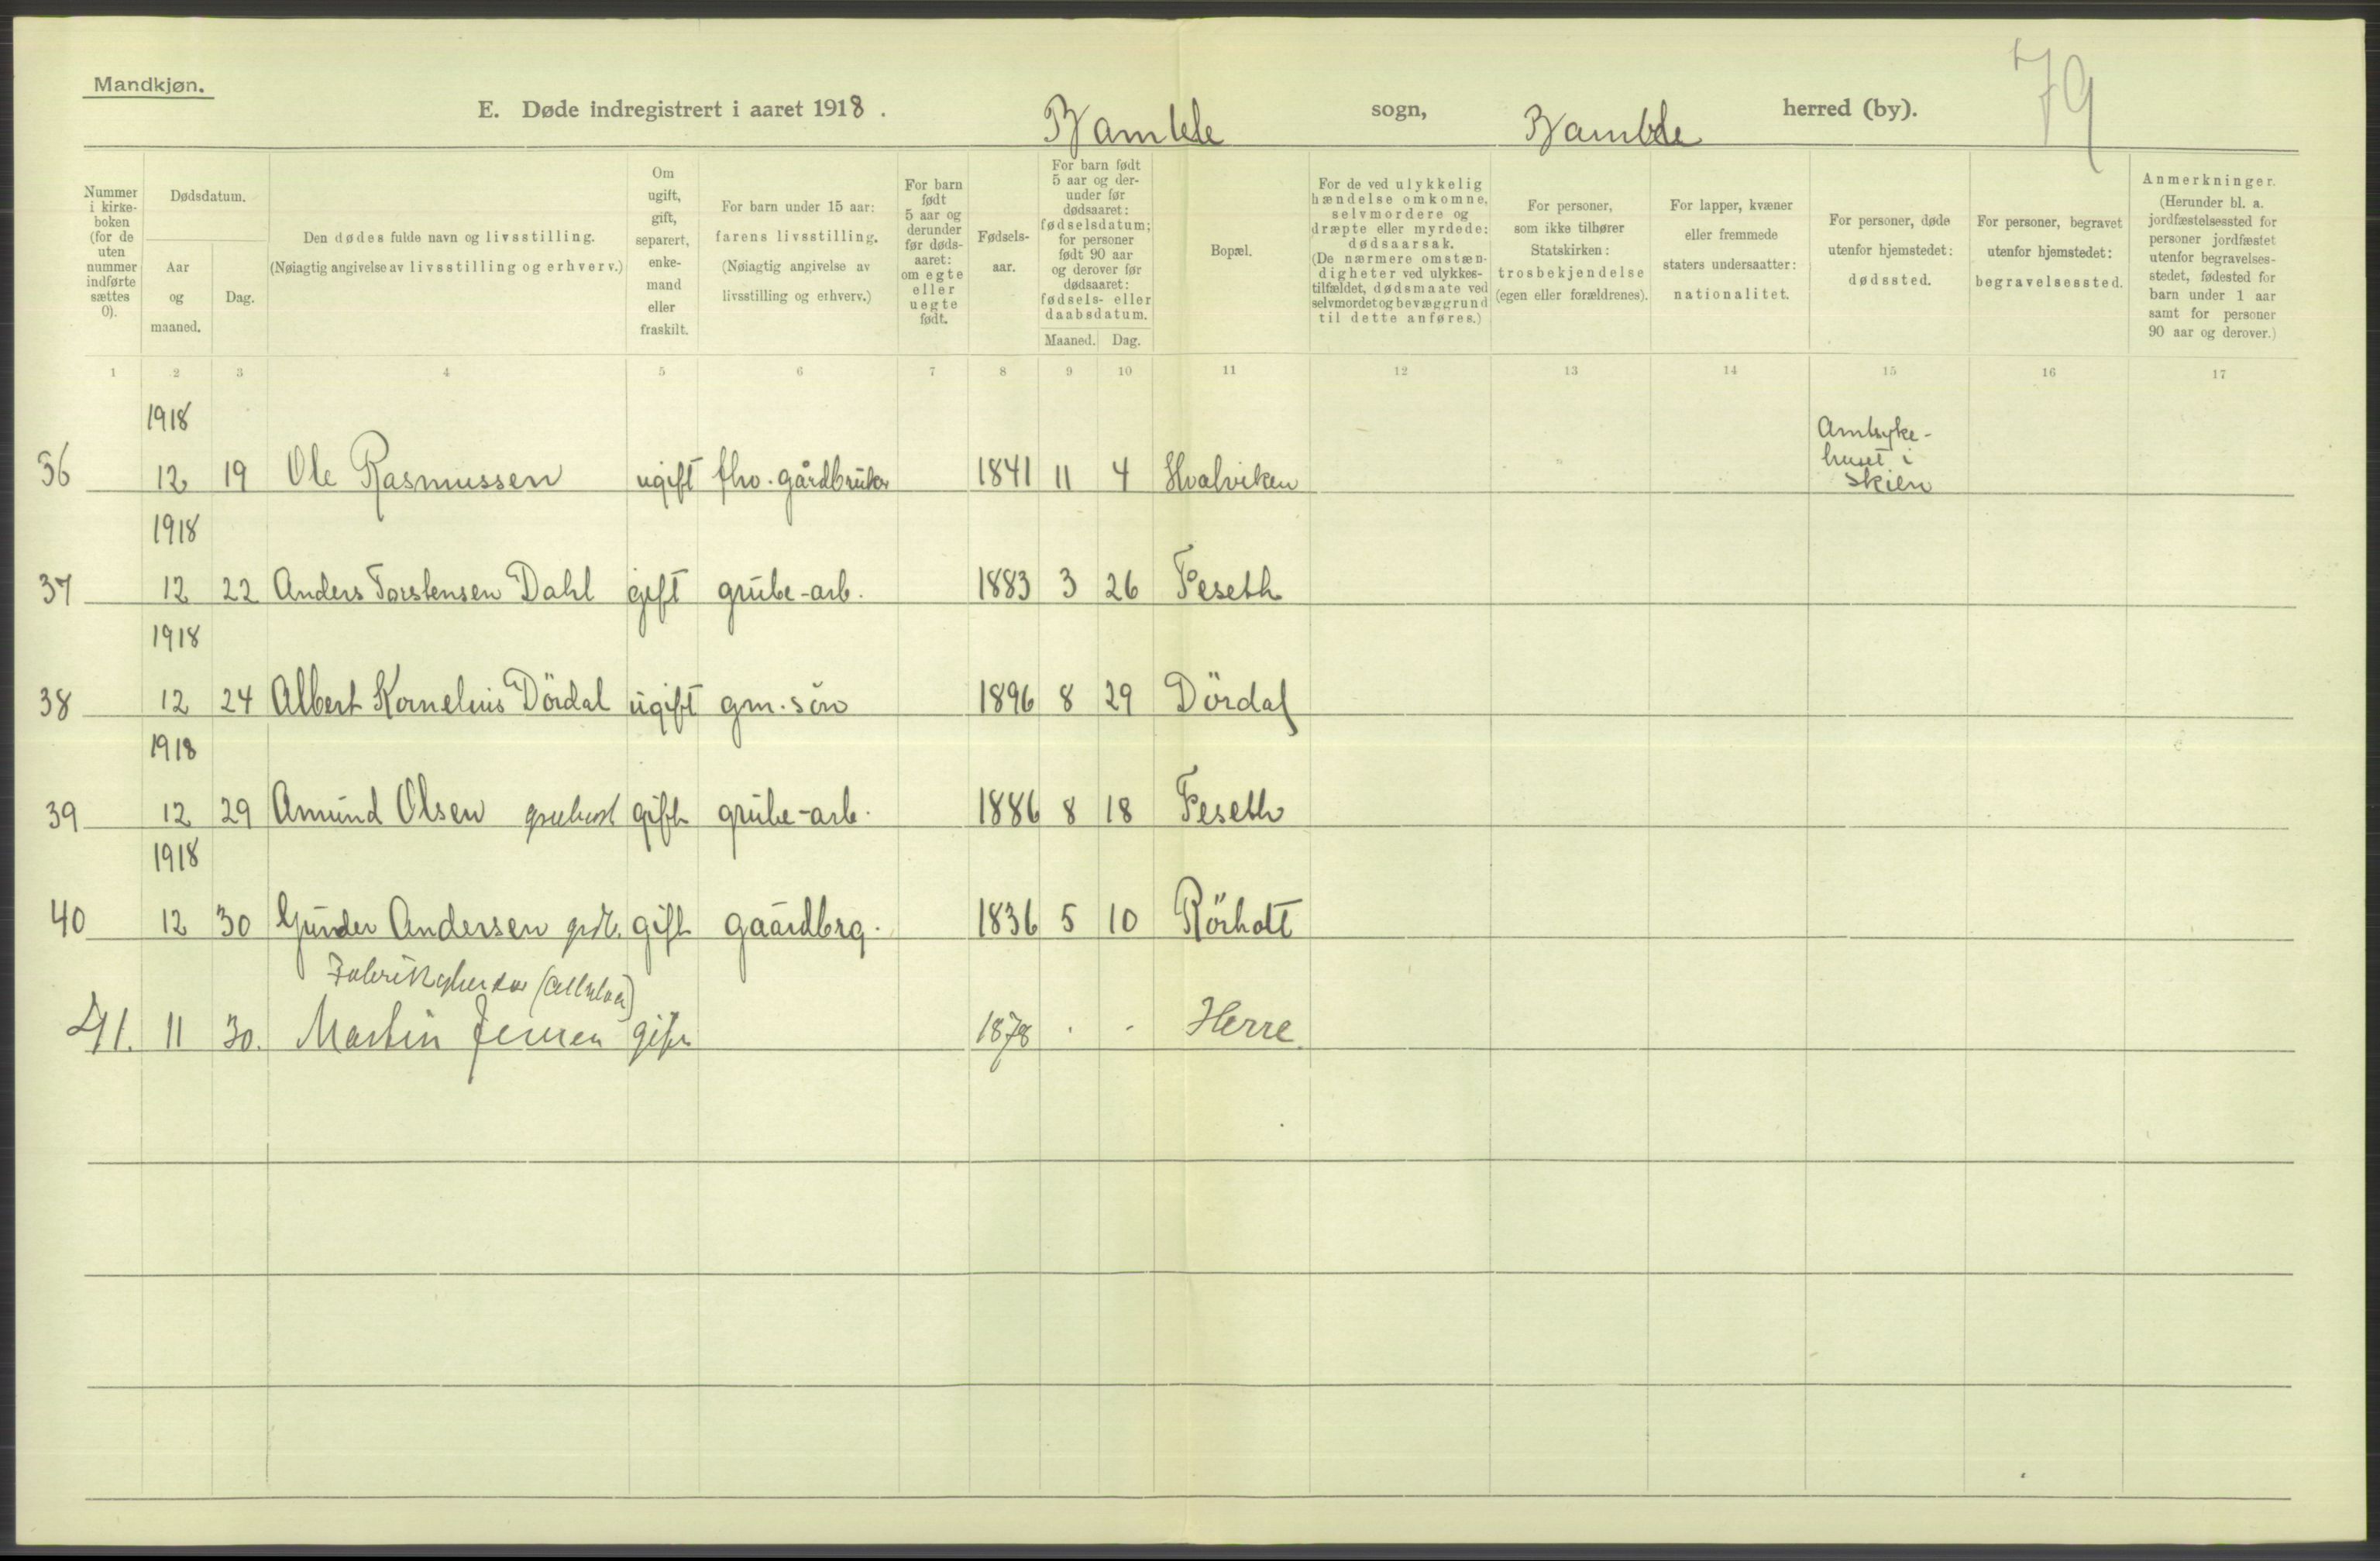 Mandkjøn.
79
E. Døde indregistrert i aaret 1918. Bamble sogn, Bamble herred (by).
Nummer i kirke-boken (for de uten nummer indførte sættes 0).
Dødsdatum.
Aar og maaned.
Dag.
Den dødes fulde navn og livsstilling.
(Nøiagtig angivelse av livsstilling og erhverv.)
Om ugift, gift, separert, enke-mand eller fraskilt.
For barn under 15 aar: farens livsstilling. (Nøiagtig angivelse av livsstilling og erhverv.)
For barn født 5 aar og derunder før døds-aaret: om egte eller uegte født.
Fødsels-aar.
For barn født 5 aar og der-under før dødsaaret: fødselsdatum; for personer født 90 aar og derover før dødsaaret: fødsels- eller daabsdatum.
Maaned. Dag.
Bopæl.
For de ved ulykkelig hændelse omkomne, selvmordere og dræpte eller myrdede: dødsaarsak. (De nærmere omstæn-digheter ved ulykkes-tilfældet, dødsmaate ved selvmordet og bevæggrund til dette anføres.)
For personer, som ikke tilhører Statskirken: trosbekjendelse (egen eller forældrenes).
For lapper, kvæner eller fremmede staters undersaatter: nationalitet.
For personer, døde utenfor hjemstedet: dødssted.
For personer, begravet utenfor hjemstedet: begravelsessted.
Anmerkninger. (Herunder bl. a. jordfæstelsessted for personer jordfæstet utenfor begravelses-stedet, fødested for barn under 1 aar samt for personer 90 aar og derover.)
1 2 3 4 5 6 7 8 9 10 11 12 13 14 15 16 17
1918
36 12 19 Ole Rasmussen ugift fhv. gårdbruker 1841 11 4 Hvalviken Amtsyke-
huset i
Skien
1918
37 12 22 Anders Torstensen Dahl gift grube-arb. 1883 3 26 Feseth
1918
38 12 24 Albert Kornelius Dördal ugift gm. sön 1896 8 29 Dördal
1918
39 12 29 Amund Olsen grubearb gift grube-arb. 1886 8 18 Feseth
1918
40 12 30 Gunder Andersen grdb. gift gaardbrg. 1836 5 10 Rörholt
41. 11 30. Martin Jensen gift 1878 . - Herre.